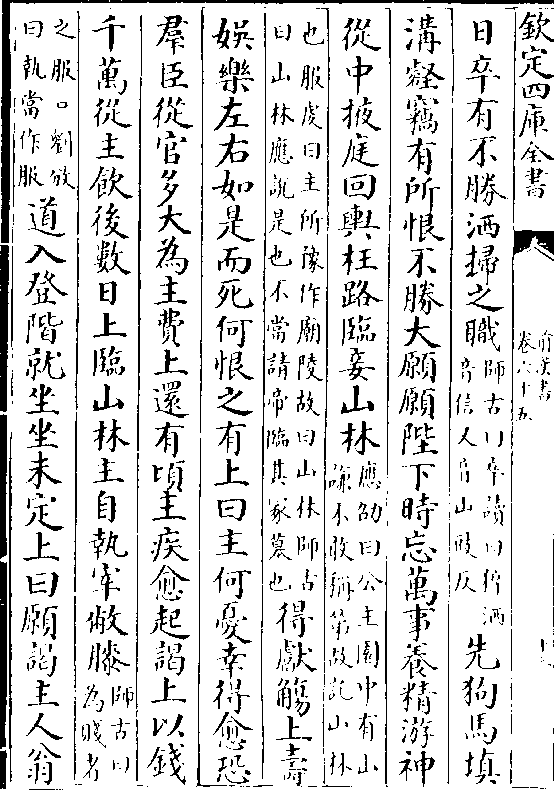 欽定四庫全書
前漢書
卷六十五
日卒有不勝洒掃之職師古曰卒讀曰猝洒音信又音山豉反先狗馬填
溝壑竊有所恨不勝大願願陛下時忘萬事養精游神
從中掖庭回輿枉路臨妾山林應劭曰公主園中有山謙不敢稱第故託山林
也服虔曰主所豫作廟陵故曰山林師古曰山林應說是也不當請帝臨其冢墓也得獻觴上壽
娛樂左右如是而死何恨之有上曰主何憂幸得愈恐
羣臣從官多大為主費上還有頃主疾愈起謁上以錢
千萬從主飲後數日上臨山林主自執宰敝膝師古曰為賤者
之服○劉攽曰執當作服道入登階就坐坐未定上曰願謁主人翁